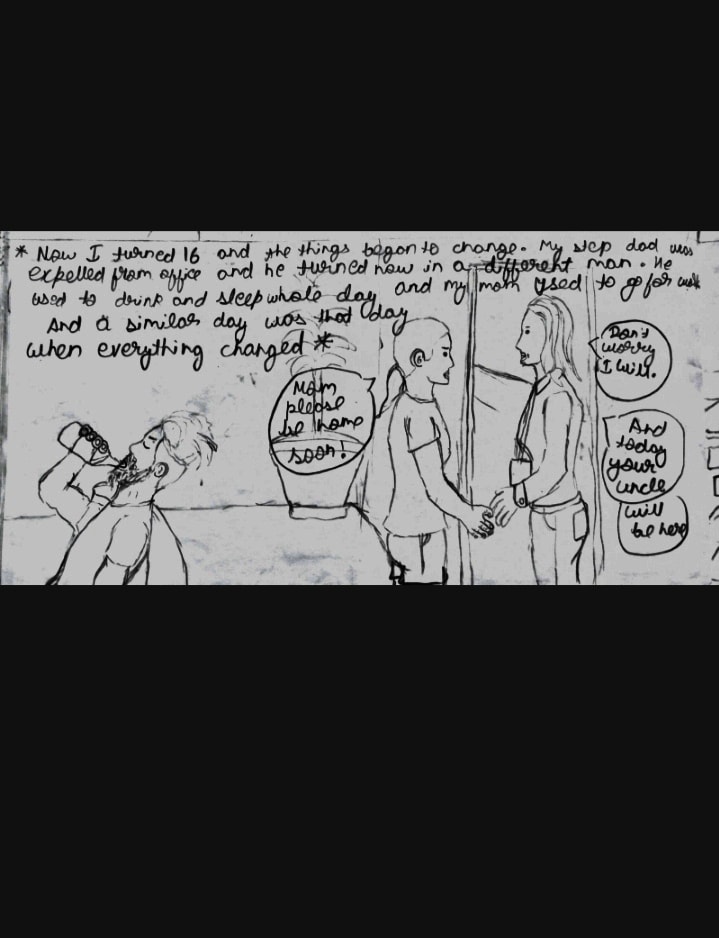 * Now I turned 16 and the things began to change. My step dad was
expelled from office and he turned now in a different man. He
used to drink and sleep whole day and my mom used to go for work
And a similar day was that day
when everything changed *
Mom
please
be home
soon!
Don't
worry
I will.
And
today
your
uncle
will
be here